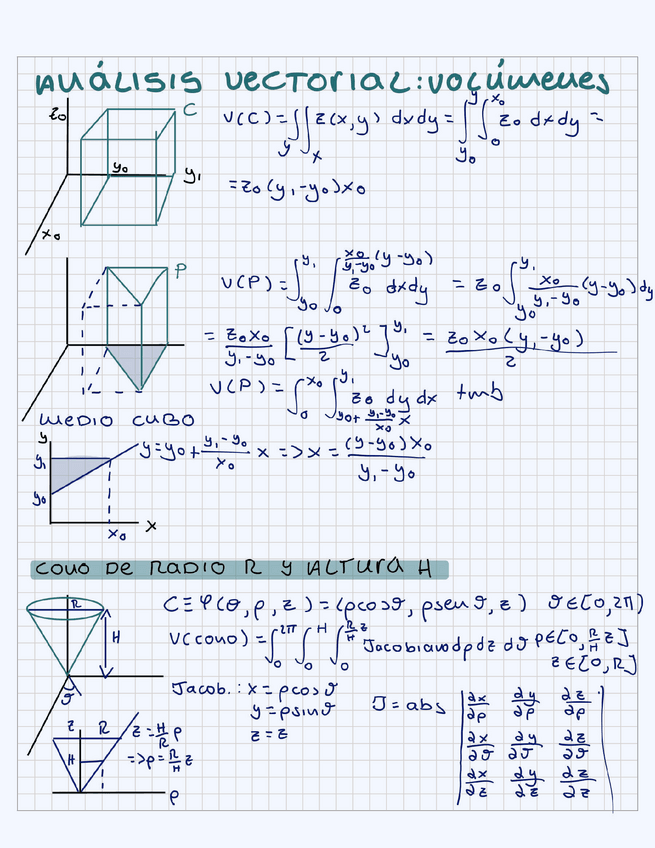 ANÁLISIS VECTORIAL: VOLÚMENES
z₀ C y₀ y₁ x₀
V(C) = ∫_y ∫_x z(x,y) dxdy = ∫_{y₀}^{y} ∫_0^{x₀} z₀ dxdy =
= z₀(y₁-y₀)x₀
P
V(P) = ∫_{y₀}^{y₁} ∫_0^{x₀/(y₁-y₀) (y-y₀)} z₀ dxdy = z₀ ∫_{y₀}^{y₁} x₀/(y₁-y₀) (y-y₀) dy
= z₀x₀/(y₁-y₀) [(y-y₀)²/2]_{y₀}^{y₁} = z₀x₀(y₁-y₀)/2
V(P) = ∫_0^{x₀} ∫_{y₀+ (y₁-y₀)/x₀ x}^{y₁} z₀ dy dx tmb
MEDIO CUBO
y y₁ y₀ x₀ x
y = y₀ + (y₁-y₀)/x₀ x => x = (y-y₀)x₀/(y₁-y₀)
CONO DE RADIO R y ALTURA H
R H ϑ
C ≡ φ(θ, ρ, z) = (ρcosϑ, ρsenϑ, z) ϑ∈[0,2π)
V(cono) = ∫_0^{2π} ∫_0^H ∫_0^{R/H z} Jacobiano dρ dz dϑ ρ∈[0, R/H z]
z∈[0,R]
Jacob.: x = ρcosϑ
y = ρsinϑ
z = z
J = abs | ∂x/∂ρ ∂y/∂ρ ∂z/∂ρ |
| ∂x/∂ϑ ∂y/∂ϑ ∂z/∂ϑ |
| ∂x/∂z ∂y/∂z ∂z/∂z |
z R H ρ
z = H/R ρ
=> ρ = R/H z